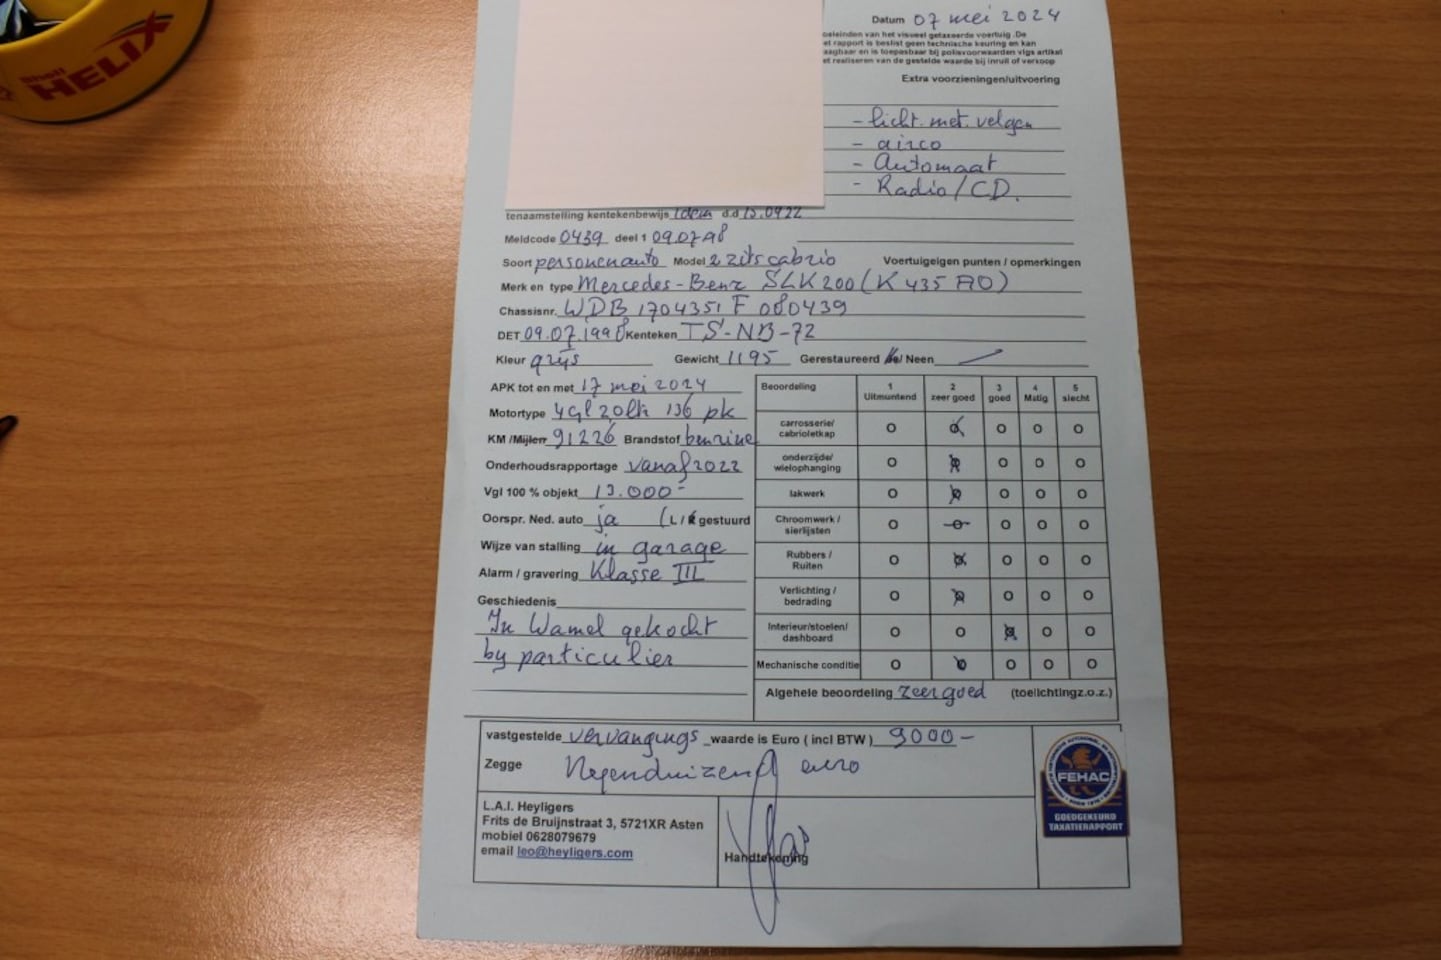 Shell
HELIX
Datum 07 mei 2024
oeleinden van het visueel getaxeerde voertuig .De
el rapport is beslist geen technische keuring en kan
aagbaar en is toepasbaar bij polisvoorwaarden vlgs artikel
et realiseren van de gestelde waarde bij inruil of verkoop
Extra voorzieningen/uitvoering
- licht. met. velgen
- airco
- Automaat
- Radio/CD.
tenaamstelling kentekenbewijs Idem d.d 15.0922
Meldcode 0439 deel 1 09.07.98
Soort personenauto Model 2 zits cabrio Voertuigeigen punten / opmerkingen
Merk en type Mercedes-Benz SLK 200 (K 435 AO)
Chassisnr. WDB 1704351 F 080439
DET 09.07.1998 Kenteken TS-NB-72
Kleur grijs Gewicht 1195 Gerestaureerd / Neen
APK tot en met 17 mei 2024
Motortype 4 gl 20ltr 136 pk
KM /Mijlen 91226 Brandstof benzine
Onderhoudsrapportage vanaf 2022
Vgl 100 % objekt 13.000-
Oorspr. Ned. auto ja (L / R gestuurd
Wijze van stalling in garage
Alarm / gravering Klasse III
Geschiedenis
In Wamel gekocht
by particulier
Beoordeling 1 Uitmuntend 2 zeer goed 3 goed 4 Matig 5 slecht
carrosserie/
cabrioletkap O O O O O
onderzijde/
wielophanging O O O O O
lakwerk O O O O O
Chroomwerk /
sierlijsten O O O O O
Rubbers /
Ruiten O O O O O
Verlichting /
bedrading O O O O O
Interieur/stoelen/
dashboard O O O O O
Mechanische conditie O O O O O
Algehele beoordeling zeer goed (toelichtingz.o.z.)
vastgestelde vervangings waarde is Euro ( incl BTW ) 9000-
Zegge Negenduizend euro
L.A.I. Heyligers
Frits de Bruijnstraat 3, 5721XR Asten
mobiel 0628079679
email leo@heyligers.com
Handtekening
FEHAC
GOEDGEKEURD
TAXATIERAPPORT